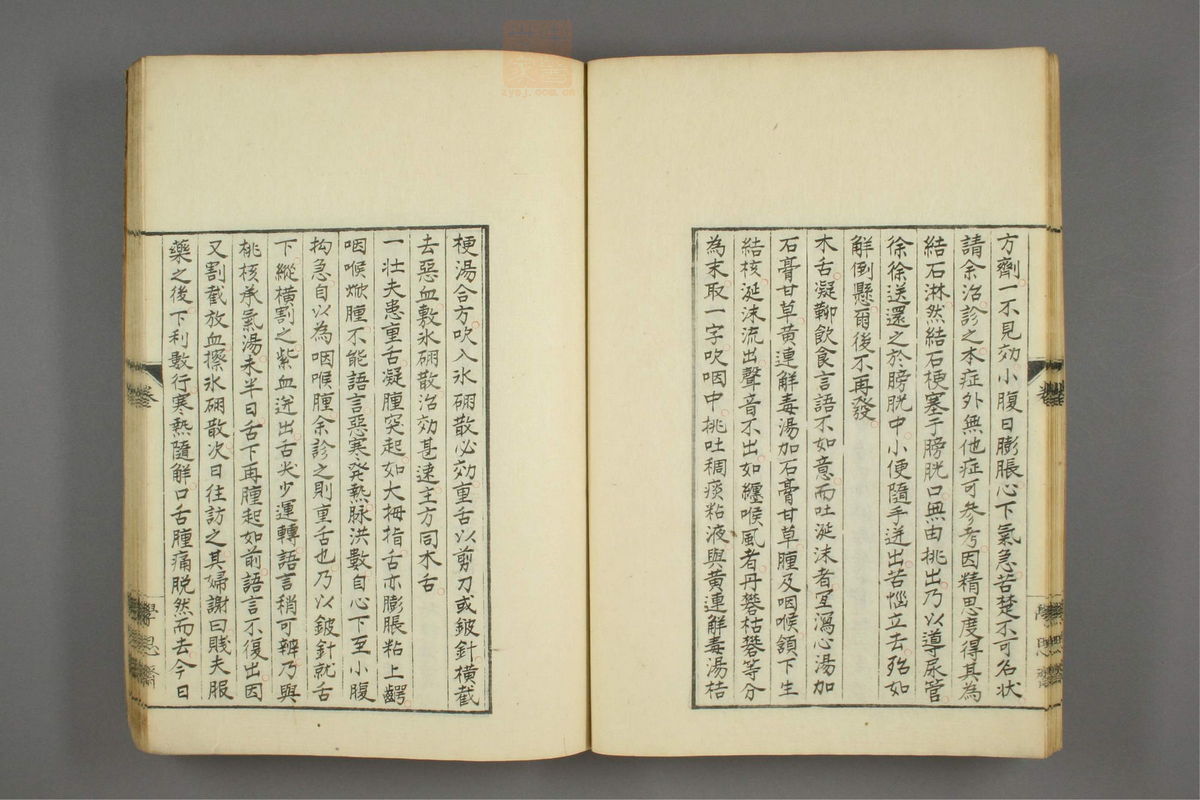 方劑一不見効小腹日膨脹心下氣急苦楚不可名状
請余治診之本症外無他症可參考因精思度得其為
結石淋然結石梗塞于膀胱口無由挑出乃以導尿管
徐徐送還之於膀胱中小便隨手迸出苦惱立去殆如
解倒懸爾後不再發
木舌凝鞕飲食言語不如意而吐涎沫者宜瀉心湯加
石膏甘草黄連解毒湯加石膏甘草腫及咽喉頷下生
結核涎沫流出聲音不出如纏喉風者丹礬枯礬等分
為末取一字吹咽中挑吐稠痰粘液與黄連解毒湯桔
梗湯合方吹入氷硼散必効重舌以剪刀或鈹針橫截
去惡血敷氷硼散治効甚速主方同木舌
一壮夫患重舌凝腫突起如大拇指舌亦膨脹粘上齶
咽喉焮腫不能語言惡寒発熱脉洪數自心下至小腹
拘急自以為咽喉腫余診之則重舌也乃以鈹針就舌
下縱橫割之紫血迸出舌尖少運轉語言稍可辨乃與
桃核承氣湯未半日舌下再腫起如前語言不復出因
又割截放血擦氷硼散次日往訪之其婦謝曰賤夫服
藥之後下利數行寒熱隨解口舌腫痛脱然而去今日
zysj.com.cn